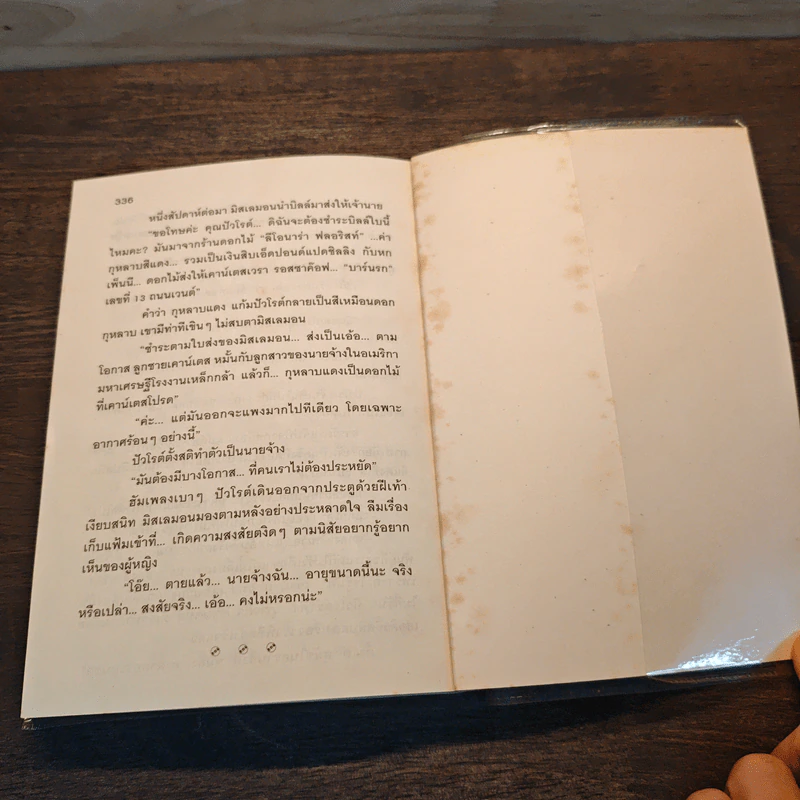 336
หนึ่งสัปดาห์ต่อมา มิสเลมอนนำบิลล์มาส่งให้เจ้านาย
“ขอโทษค่ะ คุณปัวโรต์... ดิฉันจะต้องชำระบิลล์ใบนี้
ไหมคะ? มันมาจากร้านดอกไม้ “ลีโอนาร่า ฟลอริสท์” ...ค่า
กุหลาบสีแดง... รวมเป็นเงินสิบเอ็ดปอนด์แปดชิลลิง กับหก
เพ็นนี... ดอกไม้ส่งให้เคาน์เตสเวรา รอสซาค๊อฟ... “บาร์นรก”
เลขที่ 13 ถนนเวนต์”
คำว่า กุหลาบแดง แก้มปัวโรต์กลายเป็นสีเหมือนดอก
กุหลาบ เขามีท่าทีเขินๆ ไม่สบตามิสเลมอน
“ชำระตามใบส่งของมิสเลมอน... ส่งเป็นเอ้อ... ตาม
โอกาส ลูกชายเคาน์เตส หมั้นกับลูกสาวของนายจ้างในอเมริกา
มหาเศรษฐีโรงงานเหล็กกล้า แล้วก็... กุหลาบแดงเป็นดอกไม้
ที่เคาน์เตสโปรด”
“ค่ะ... แต่มันออกจะแพงมากไปทีเดียว โดยเฉพาะ
อากาศร้อนๆ อย่างนี้”
ปัวโรต์ตั้งสติทำตัวเป็นนายจ้าง
“มันต้องมีบางโอกาส... ที่คนเราไม่ต้องประหยัด”
ฮัมเพลงเบาๆ ปัวโรต์เดินออกจากประตูด้วยฝีเท้า
เงียบสนิท มิสเลมอนมองตามหลังอย่างประหลาดใจ ลืมเรื่อง
เก็บแฟ้มเข้าที่... เกิดความสงสัยตงิดๆ ตามนิสัยอยากรู้อยาก
เห็นของผู้หญิง
“โอ๊ย... ตายแล้ว... นายจ้างฉัน... อายุขนาดนี้นะ จริง
หรือเปล่า... สงสัยจริง... เอ้อ... คงไม่หรอกน่ะ”